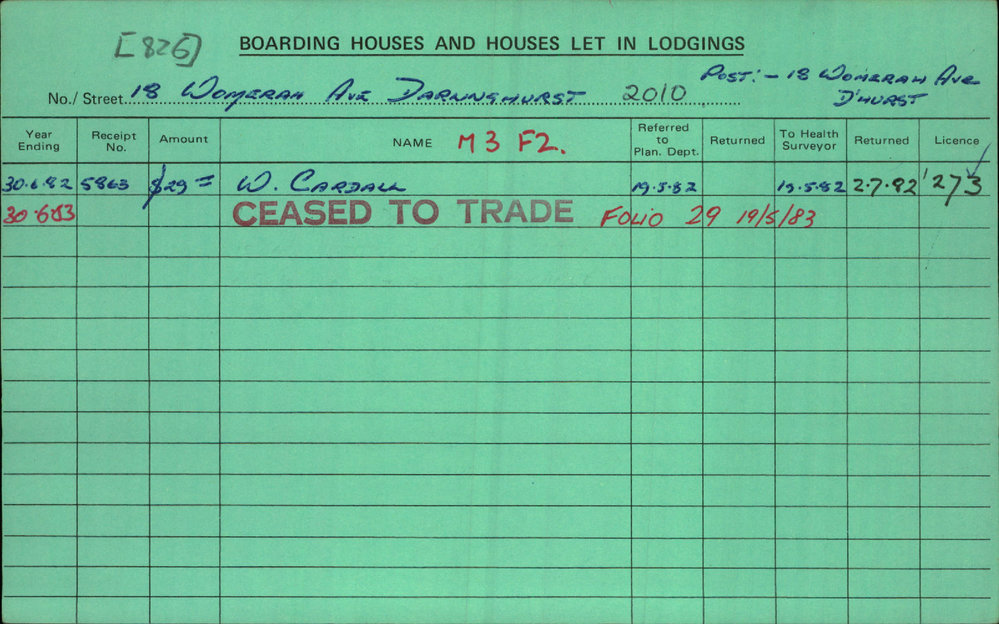 [826] BOARDING HOUSES AND HOUSES LET IN LODGINGS
Post:- 18 Womerah Ave
D'hurst
No./Street 18 Womerah Ave Darlinghurst 2010
Year Ending Receipt No. Amount NAME M3 F2. Referred to Plan. Dept. Returned To Health Surveyor Returned Licence
30.6.82 5863 $29= W. Cardall 19.5.82 19.5.82 2.7.82 273
30.6.83 CEASED TO TRADE Folio 29 19/5/83